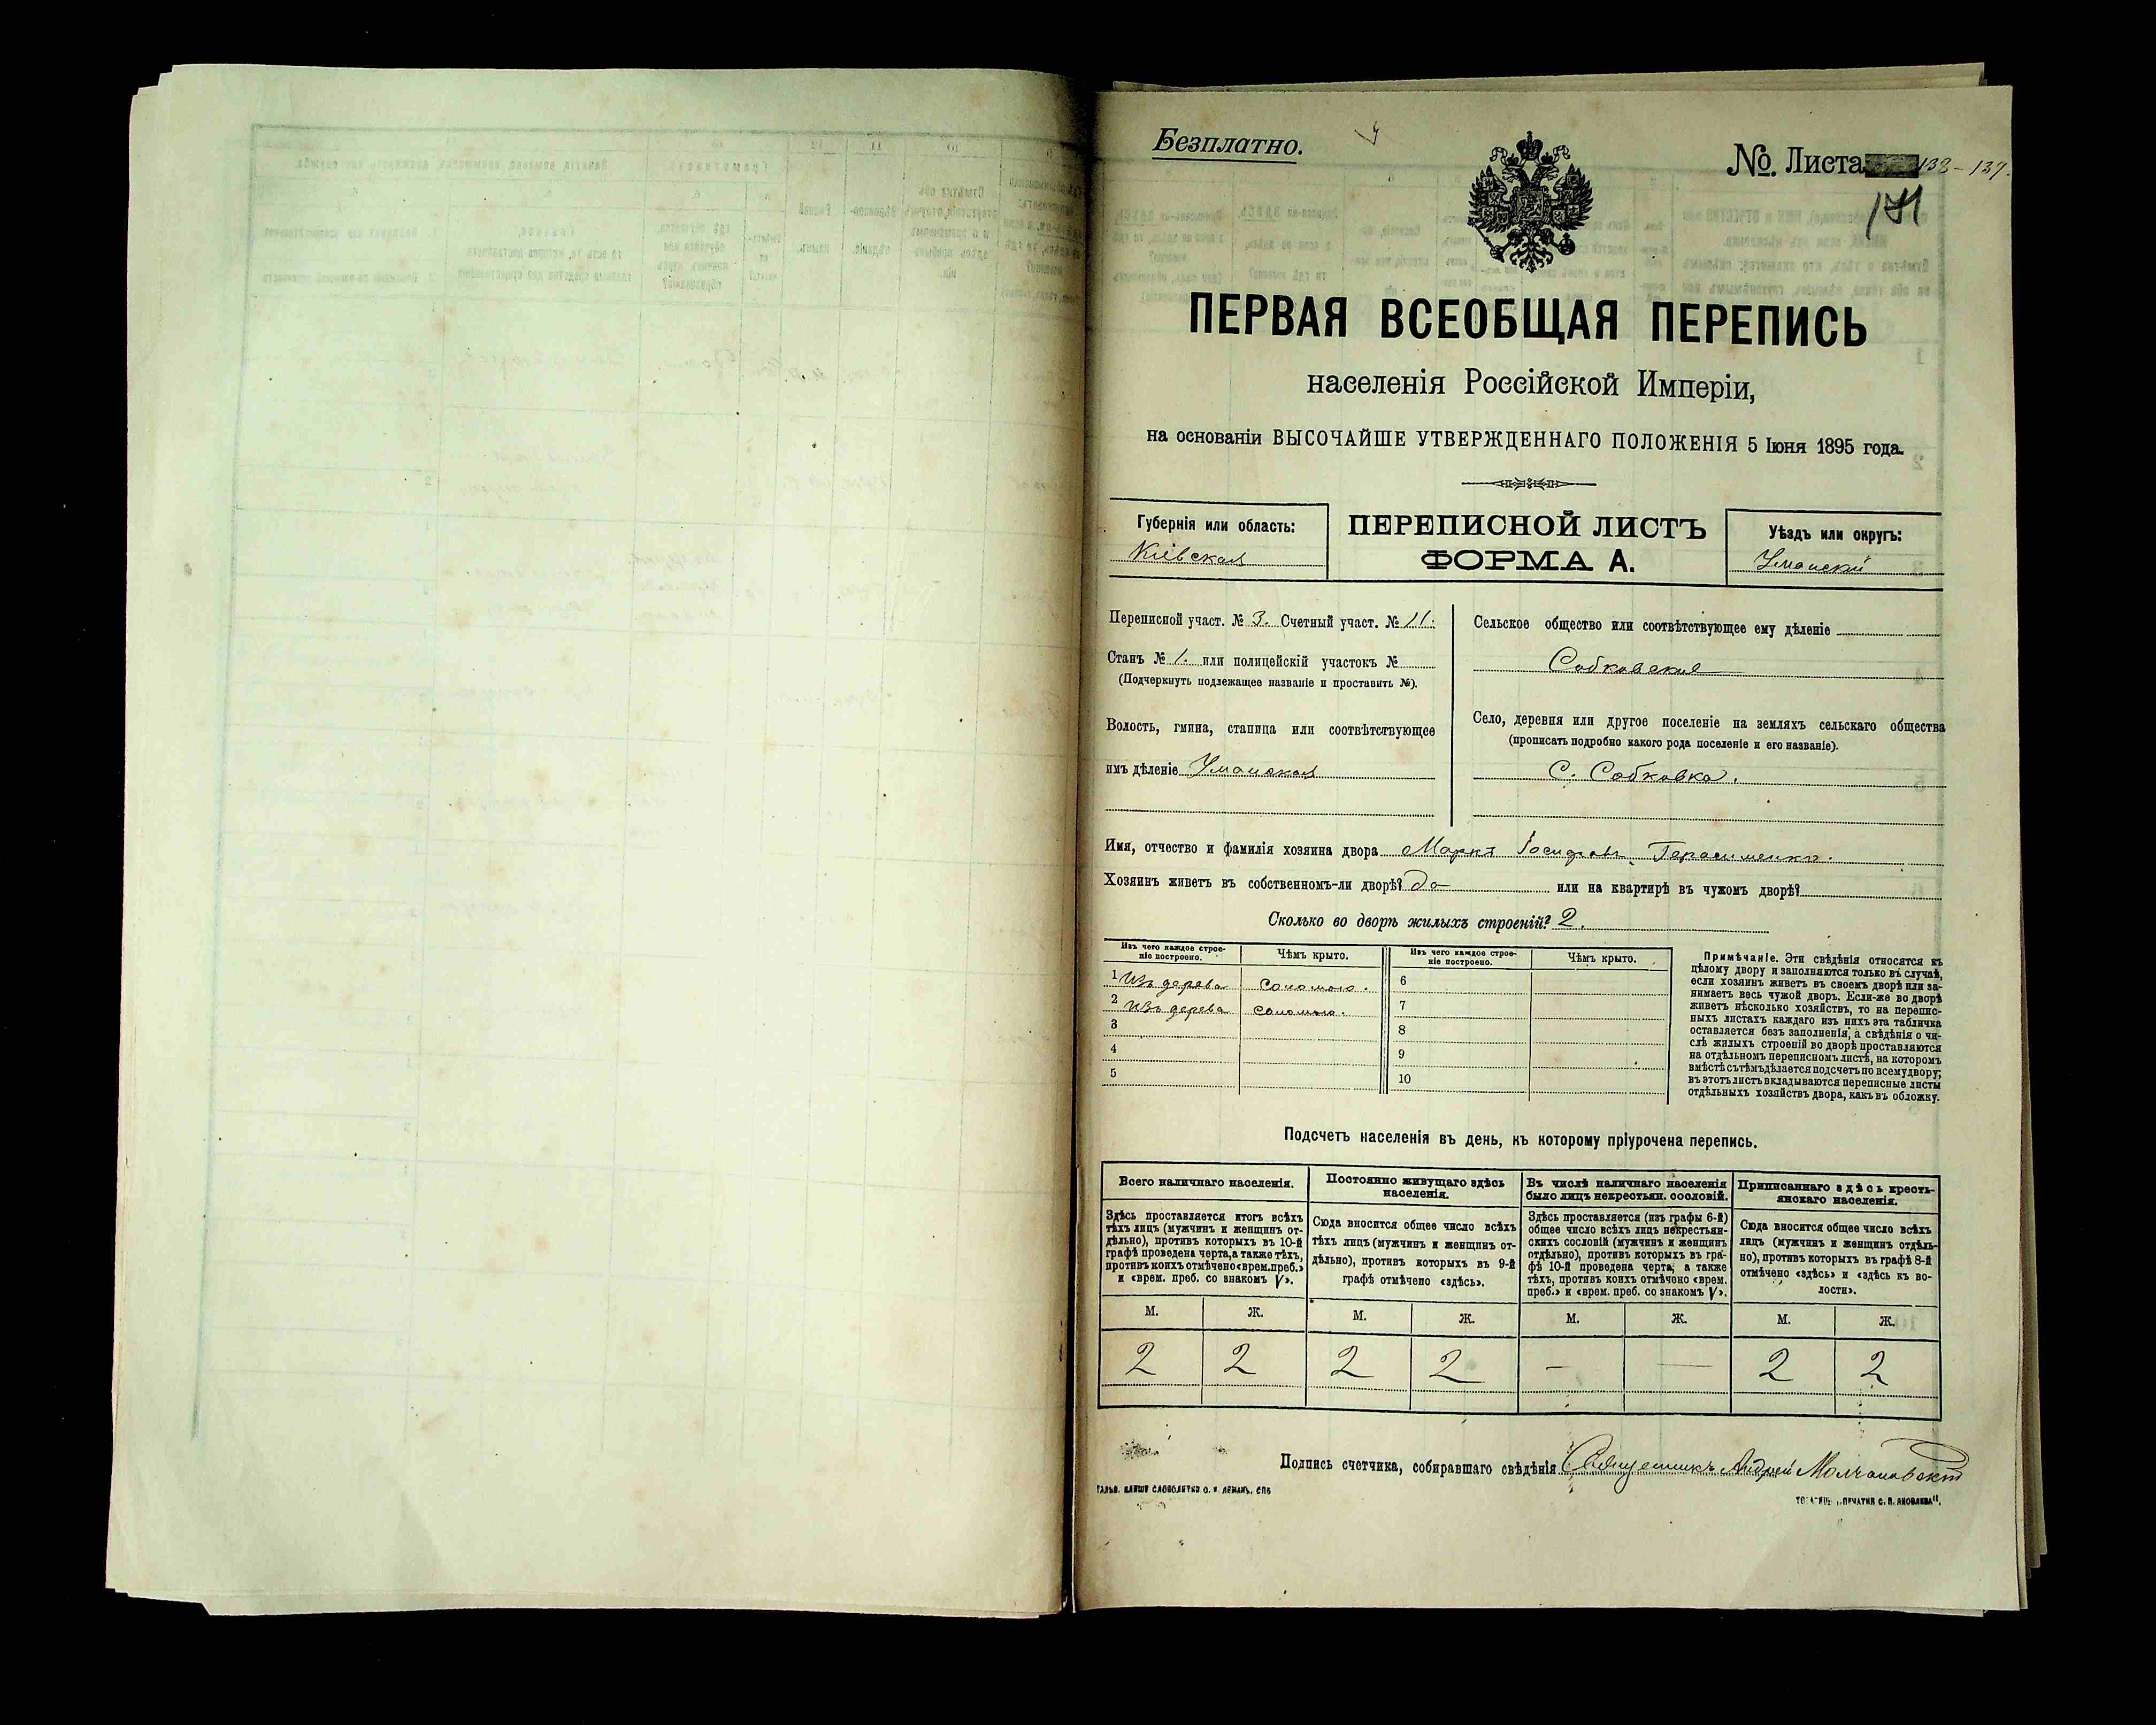 Безплатно.
№. Листа 138-139.
141
ПЕРВАЯ ВСЕОБЩАЯ ПЕРЕПИСЬ
населенія Россійской Имперіи,
на основаніи ВЫСОЧАЙШЕ УТВЕРЖДЕННАГО ПОЛОЖЕНІЯ 5 Іюня 1895 года.
Губернія или область:
Кіевская
ПЕРЕПИСНОЙ ЛИСТЪ
ФОРМА А.
Уѣздъ или округъ:
Уманскій
Переписной участ. № 3. Счетный участ. № 11.
Станъ № 1. или полицейскій участокъ №
(Подчеркнуть подлежащее названіе и проставить №).
Волость, гмина, станица или соотвѣтствующее
имъ дѣленіе Уманская
Сельское общество или соотвѣтствующее ему дѣленіе
Собковское
Село, деревня или другое поселеніе на земляхъ сельскаго общества
(прописать подробно какого рода поселеніе и его названіе).
С. Собковка.
Имя, отчество и фамилія хозяина двора Маркъ Іосифовъ Герасименко.
Хозяинъ живетъ въ собственномъ-ли дворѣ? да или на квартирѣ въ чужомъ дворѣ?
Сколько во дворѣ жилыхъ строеній? 2.
Изъ чего каждое строе-
ніе построено.
Чѣмъ крыто.
Изъ чего каждое строе-
ніе построено.
Чѣмъ крыто.
1 Изъ дерева соломою. 6
2 Изъ дерева соломою. 7
3 8
4 9
5 10
Примѣчаніе. Эти свѣдѣнія относятся къ
цѣлому двору и заполняются только въ случаѣ,
если хозяинъ живетъ въ своемъ дворѣ или за-
нимаетъ весь чужой дворъ. Если-же во дворѣ
живетъ нѣсколько хозяйствъ, то на перепис-
ныхъ листахъ каждаго изъ нихъ эта табличка
оставляется безъ заполненія, а свѣдѣнія о чи-
слѣ жилыхъ строеній во дворѣ проставляются
на отдѣльномъ переписномъ листѣ, на которомъ
вмѣстѣ съ тѣмъ дѣлается подсчетъ по всему двору;
въ этотъ листъ вкладываются переписные листы
отдѣльныхъ хозяйствъ двора, какъ въ обложку.
Подсчетъ населенія въ день, къ которому пріурочена перепись.
Всего наличнаго населенія.
Здѣсь проставляется итогъ всѣхъ
тѣхъ лицъ (мужчинъ и женщинъ от-
дѣльно), противъ которыхъ въ 10-й
графѣ проведена черта, а также тѣхъ,
противъ коихъ отмѣчено «врем. преб.»
и «врем. преб. со знакомъ V».
Постоянно живущаго здѣсь
населенія.
Сюда вносится общее число всѣхъ
тѣхъ лицъ (мужчинъ и женщинъ от-
дѣльно), противъ которыхъ въ 9-й
графѣ отмѣчено «здѣсь».
Въ числѣ наличнаго населенія
было лицъ некрестьян. сословій.
Здѣсь проставляется (изъ графы 6-й)
общее число всѣхъ лицъ некрестьян-
скихъ сословій (мужчинъ и женщинъ
отдѣльно), противъ которыхъ въ гра-
фѣ 10-й проведена черта, а также
тѣхъ, противъ коихъ отмѣчено «врем.
преб.» и «врем. преб. со знакомъ V».
Приписаннаго здѣсь кресть-
янскаго населенія.
Сюда вносится общее число всѣхъ
лицъ (мужчинъ и женщинъ отдѣль-
но), противъ которыхъ въ графѣ 8-й
отмѣчено «здѣсь» и «здѣсь къ во-
лости».
М. Ж. М. Ж. М. Ж. М. Ж.
2 2 2 2 — — 2 2
Подпись счетчика, собиравшаго свѣдѣнія Священникъ Андрей Молчановскій
ГАЛЬВ. КЛИШЕ СЛОВОЛИТНИ О. И. ЛЕМАНЪ, СПБ
ТОВ „ПЕЧАТНЯ С. П. ЯКОВЛЕВА".